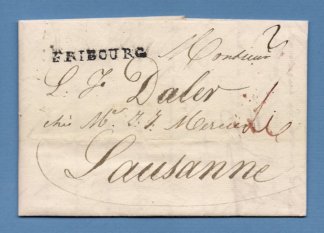 FRIBOURG Monsieur 2
L. J. Daler
chez Mr. J. J. Mercier
Lausanne